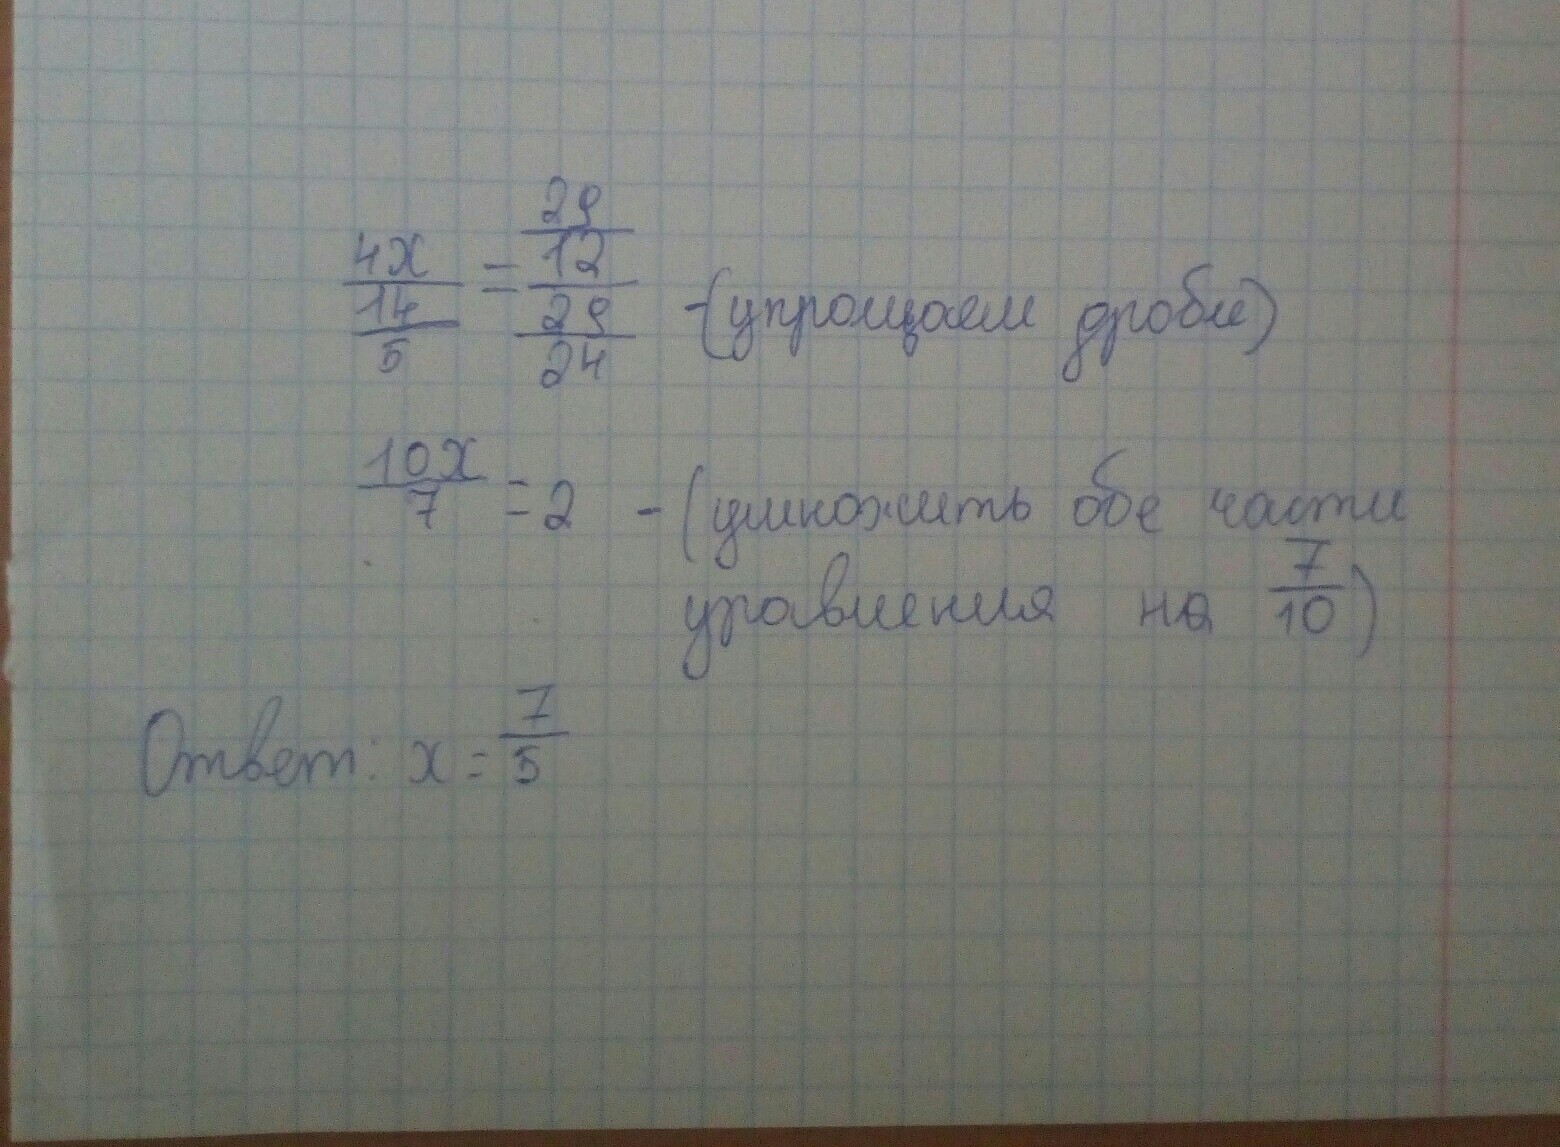 4x/(14/5) = (29/12)/(29/24) - (упрощаем дроби)
10x/7 = 2 - (умножить обе части
уравнения на 7/10)
Ответ: x = 7/5